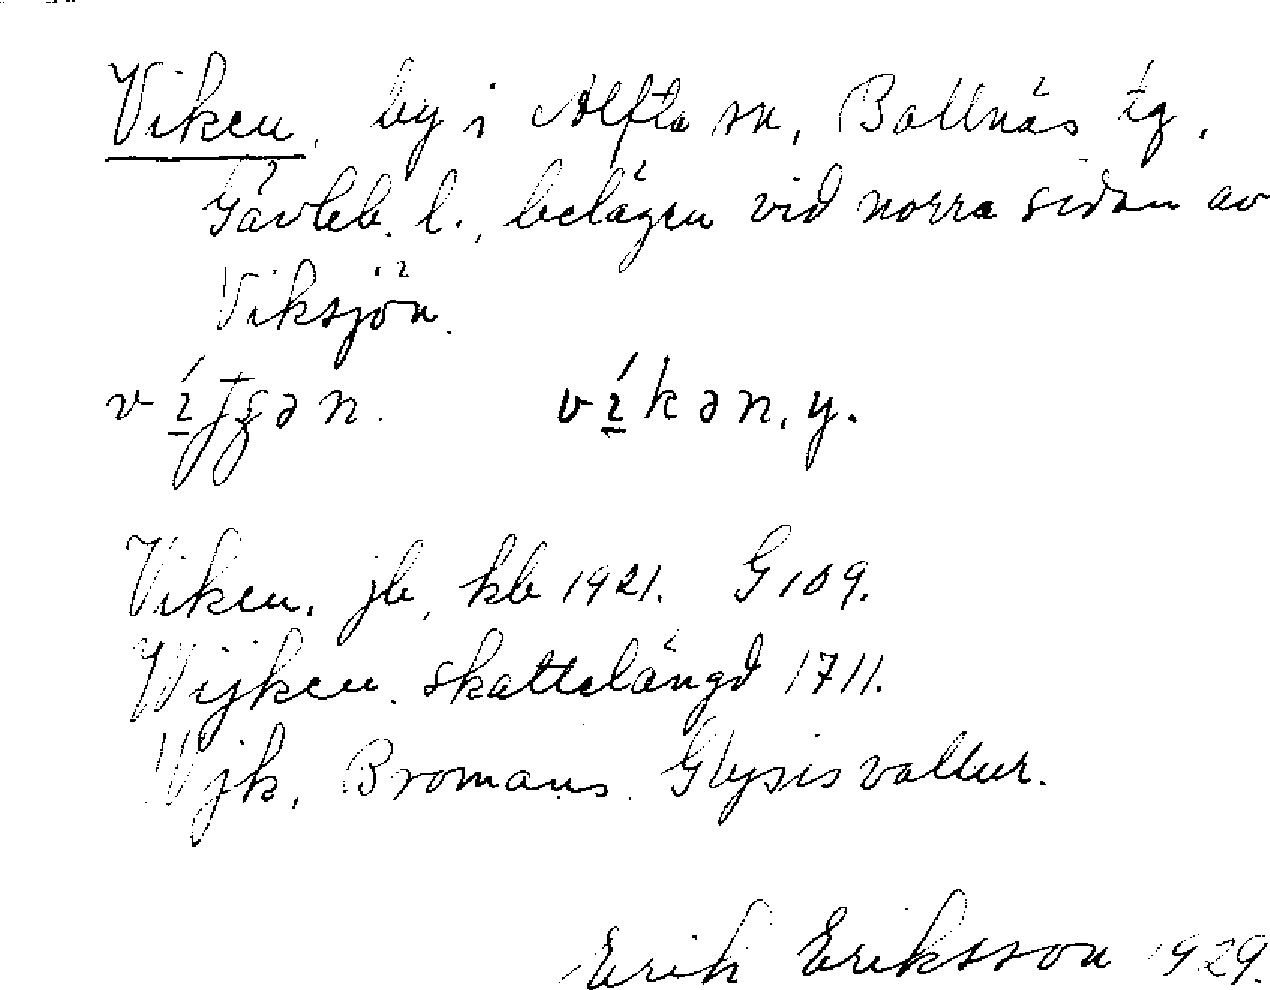 Viken, by i Alfta sn, Bollnäs tg.
Gävleb. l., belägen vid norra sidan av
Viksjön.
víkən, y.
Viken, jb, kb 1921. G 109.
Wijken. skattelängd 1711.
Wjk, Bromans Glysisvallur.
Erik Eriksson 1929.